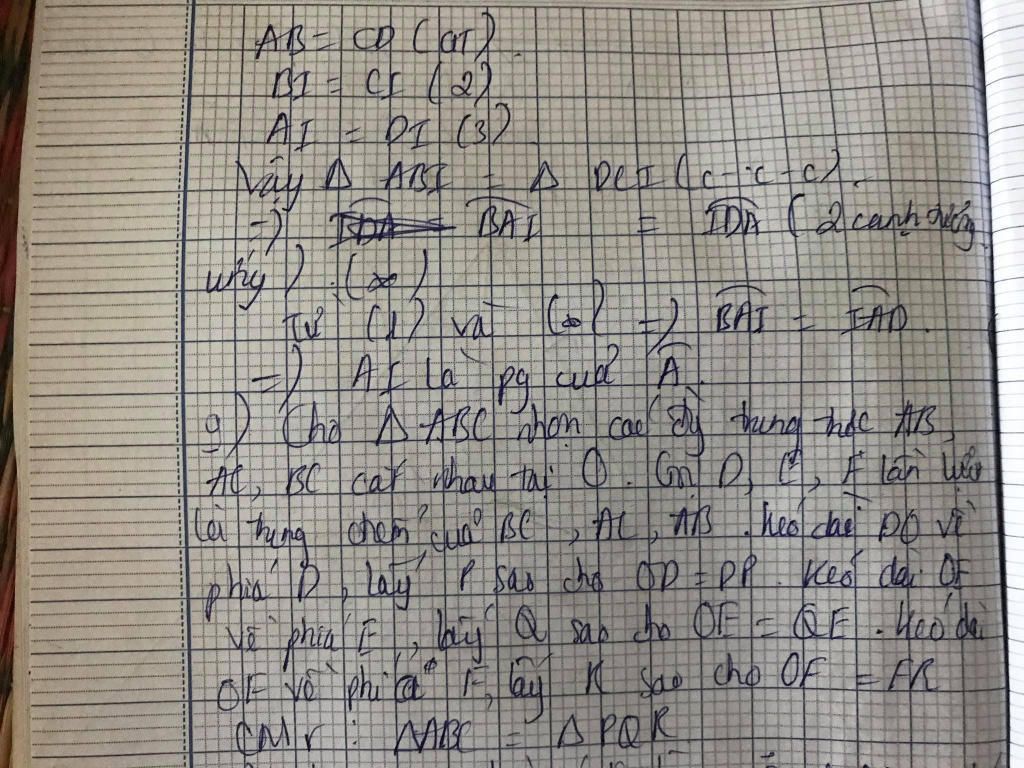 AB = CD (GT).
BI = CI (2)
AI = DI (3)
Vậy Δ ABI = Δ DCI (c-c-c).
=) BAI = IDA ( 2 cạnh tương
ứng ) . (∞)
Từ (1) và (∞) =) BAI = IAD.
=) AI là pg của A.
9) Cho Δ ABC nhọn các đg trung trực AB,
AC, BC cắt nhau tại O. Gọi D, E, F lần lượt
là trung điểm của BC, AC, AB. Kéo dài DO về
phía D, lấy P sao cho OD = DP. Kéo dài OE
về phía E, lấy Q sao cho OE = QE. Kéo dài
OF về phía F, lấy R sao cho OF = FR
CMr : ΔABC = Δ PQR